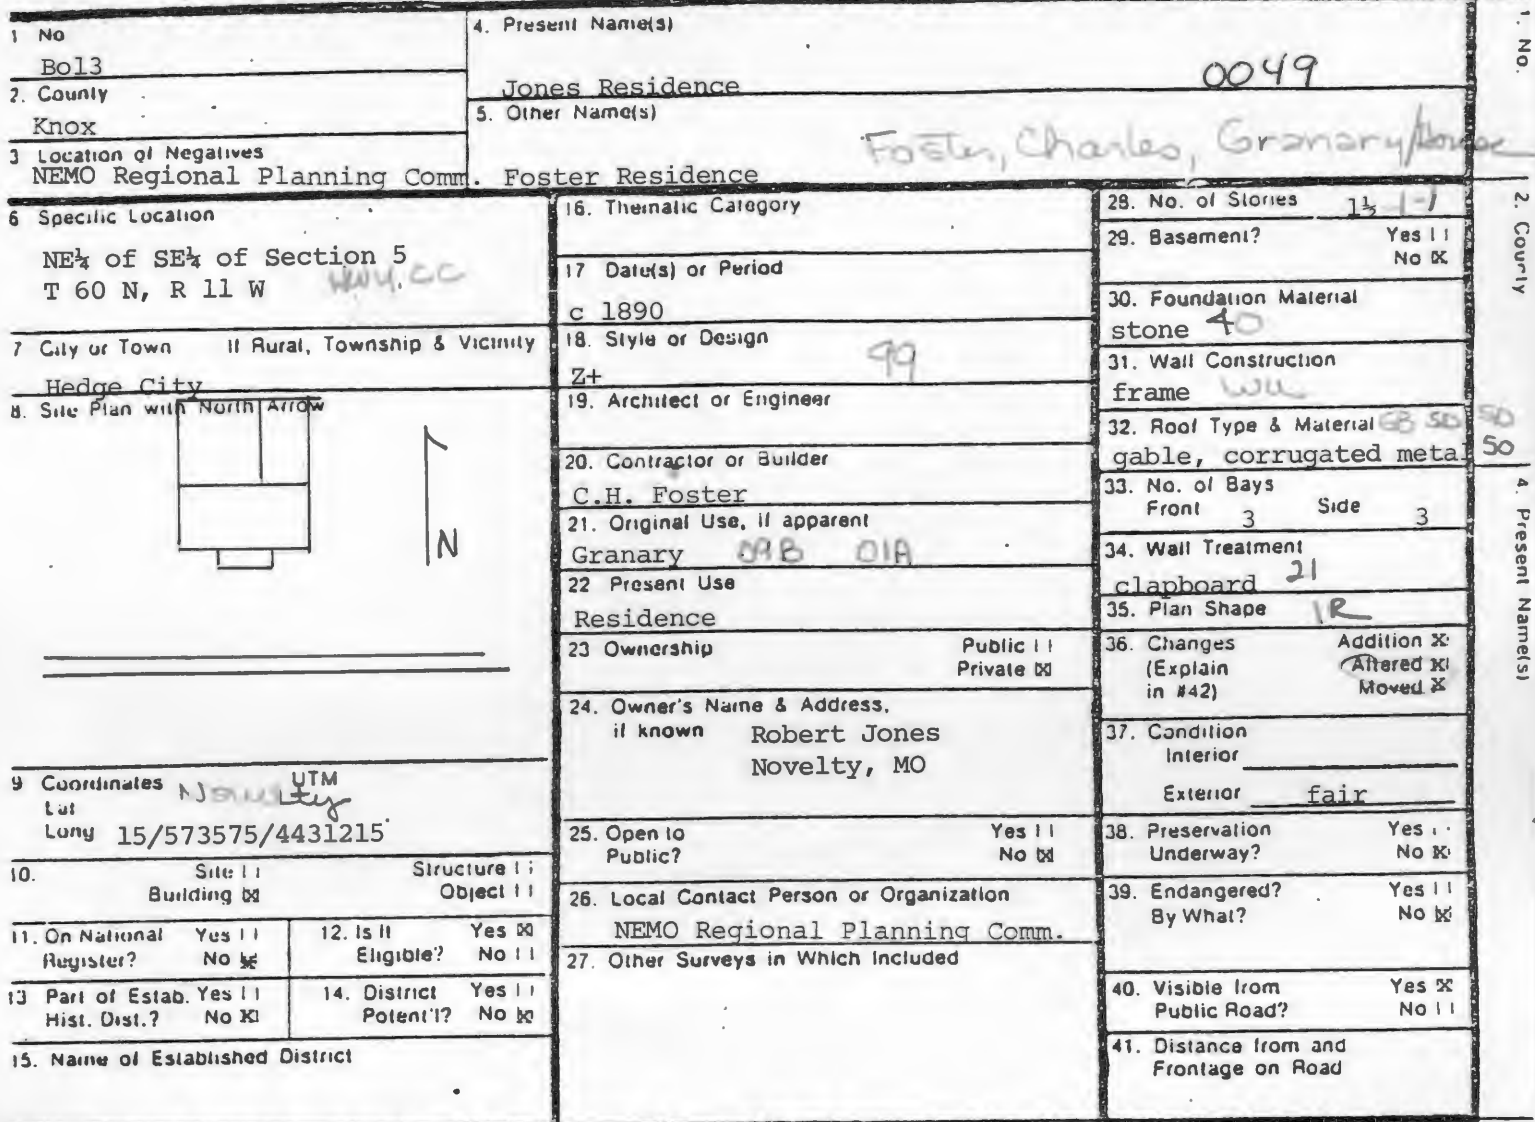 1 No
Bo13
2. County
Knox
3 Location of Negatives
NEMO Regional Planning Comm.
4. Present Name(s)
0049
Jones Residence
5. Other Name(s)
Foster, Charles, Granary/House
Foster Residence
6 Specific Location
NE¼ of SE¼ of Section 5
T 60 N, R 11 W Hwy. CC
7 City or Town If Rural, Township & Vicinity
Hedge City
8. Site Plan with North Arrow
N
9 Coordinates UTM
Novelty
Lat
Long 15/573575/4431215
10. Site Structure
Building ☒ Object
11. On National Yes
Register? No ☒
12. Is It Yes ☒
Eligible? No
13 Part of Estab. Yes
Hist. Dist.? No ☒
14. District Yes
Potent'l? No ☒
15. Name of Established District
16. Thematic Category
17 Date(s) or Period
c 1890
18. Style or Design
99
Z+
19. Architect or Engineer
20. Contractor or Builder
C.H. Foster
21. Original Use, if apparent
Granary 09B 01A
22 Present Use
Residence
23 Ownership Public
Private ☒
24. Owner's Name & Address,
if known Robert Jones
Novelty, MO
25. Open to Yes
Public? No ☒
26. Local Contact Person or Organization
NEMO Regional Planning Comm.
27. Other Surveys in Which Included
28. No. of Stories 1½ 1-1
29. Basement? Yes
No ☒
30. Foundation Material
stone 40
31. Wall Construction
frame
32. Roof Type & Material GB SD SD
gable, corrugated metal 50
33. No. of Bays
Front 3 Side 3
34. Wall Treatment
clapboard 21
35. Plan Shape IR
36. Changes Addition ☒
(Explain Altered ☒
in #42) Moved ☒
37. Condition
Interior
Exterior fair
38. Preservation Yes
Underway? No ☒
39. Endangered? Yes
By What? No ☒
40. Visible from Yes ☒
Public Road? No
41. Distance from and
Frontage on Road
1. No.
2. County
4. Present Name(s)